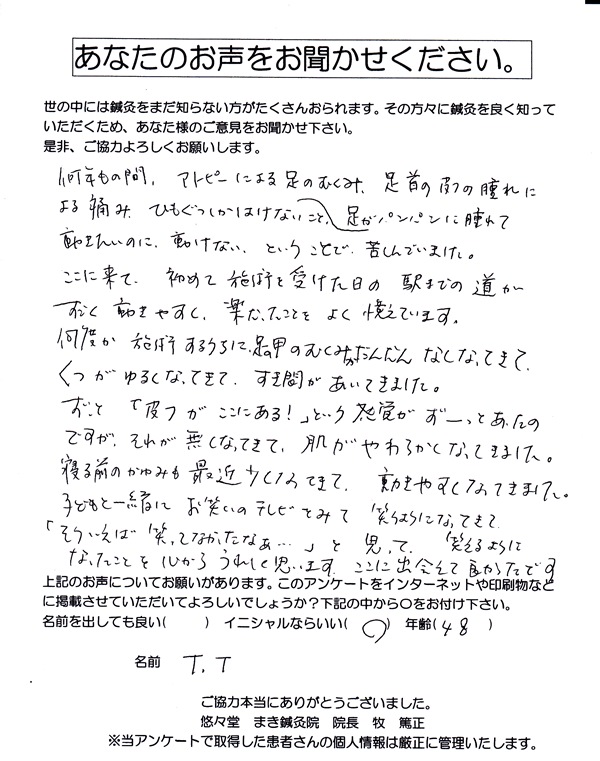 あなたのお声をお聞かせください。
世の中には鍼灸をまだ知らない方がたくさんおられます。その方々に鍼灸を良く知って
いただくため、あなた様のご意見をお聞かせ下さい。
是非、ご協力よろしくお願いします。
何年もの間、アトピーによる足のむくみ、足首の皮フの腫れに
よる痛み、ひもぐつしかはけないこと、足がパンパンに腫れて
動きたいのに、動けない、ということで、苦しんでいました。
ここに来て、初めて施術を受けた日の駅までの道が
すごく動きやすく、楽だったことをよく憶えています。
何度か施術するうちに、足の甲のむくみがだんだんなくなってきて、
くつがゆるくなってきて、すき間があいてきました。
ずっと「皮フがここにある!」という感覚がずーっとあったの
ですが、それが無くなってきて、肌がやわらかくなってきました。
寝る前のかゆみも最近少くなってきて、動きやすくなってきました。
子どもと一緒にお笑いのテレビをみて笑うようになってきて
「そういえば笑ってなかったなぁ…」と思って、笑えるように
なったことを心からうれしく思います。ここに出会えて良かったです
上記のお声についてお願いがあります。このアンケートをインターネットや印刷物など
に掲載させていただいてよろしいでしょうか?下記の中から〇をお付け下さい。
名前を出しても良い( ) イニシャルならいい( 〇 ) 年齢( 48 )
名前 T.T
ご協力本当にありがとうございました。
悠々堂 まき鍼灸院 院長 牧 篤正
※当アンケートで取得した患者さんの個人情報は厳正に管理いたします。